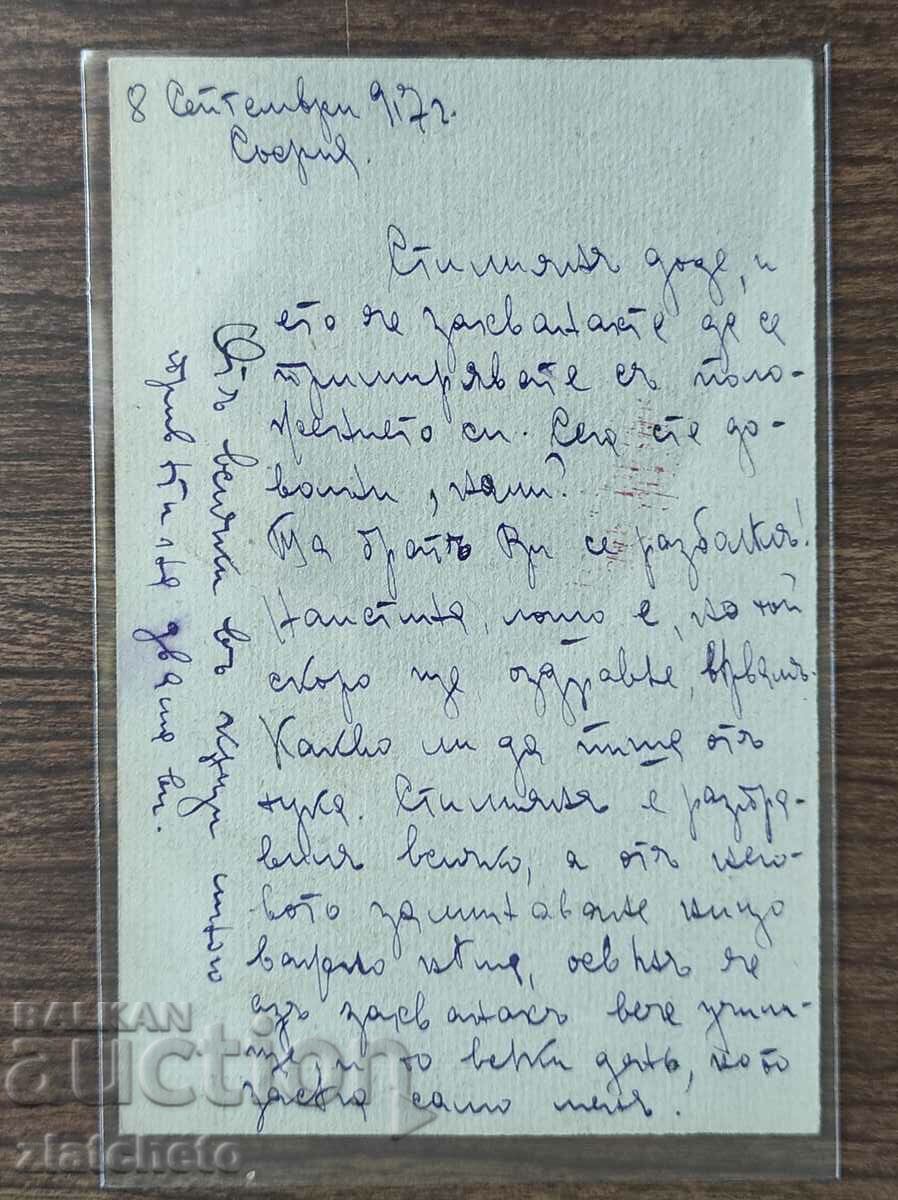 8 Септември 917 г.
София.
Стилиянъ доде, и
ето че захванахте да се
примирявате съ поло-
жението си. Сега сте до-
волни, нали?
Та братъ Ви се разболял!
Наистина, лошо е, но той
скоро ще оздравѣе, вѣрвамъ.
Какво ли да пиша отъ
тука. Стилиянъ е разпра-
вилъ всичко, а отъ него-
вото заминаване нищо
важно нѣма, освѣнъ че
азъ захванахъ вече учили-
ще, и то всѣки день, което
засяга само менъ.
Отъ всички въ кѫщи много
привѣти на двама ви.
BALKAN
auction
zlatcheto